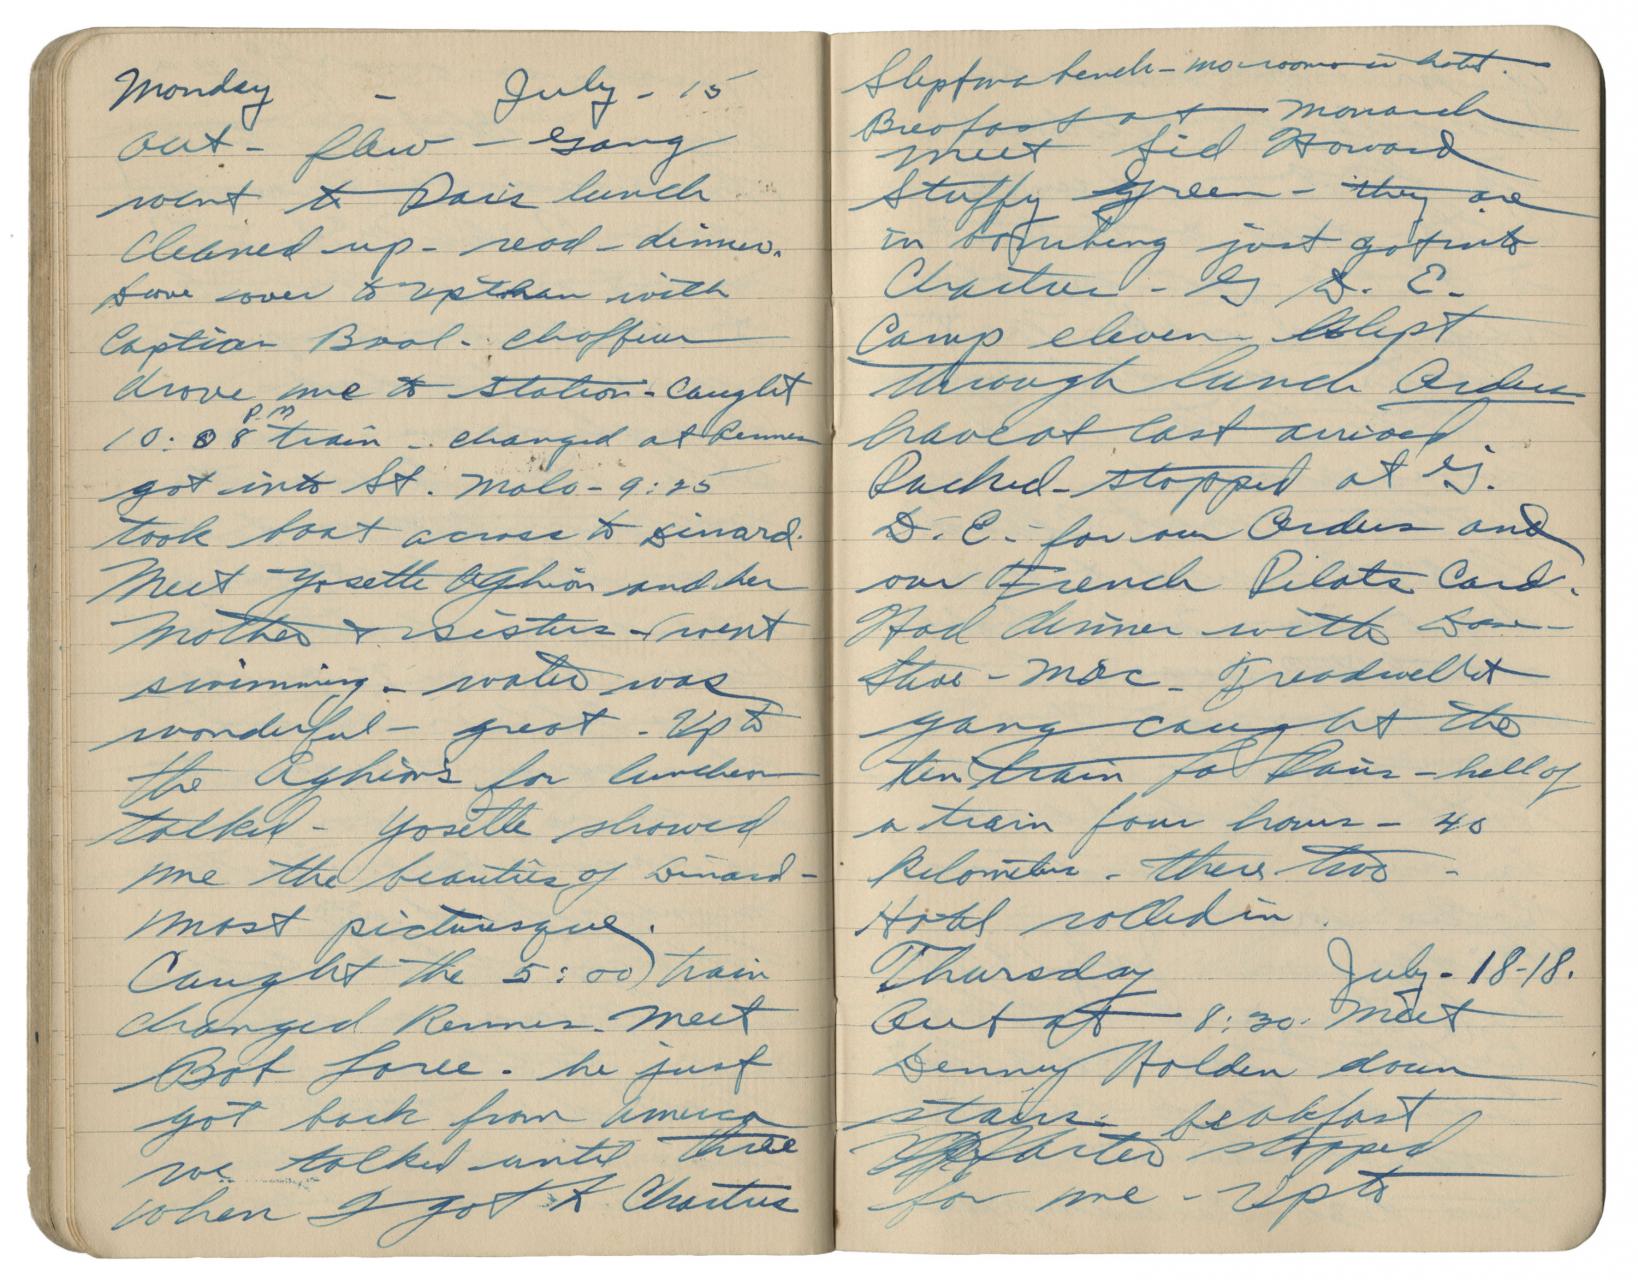 Monday - July - 15
out - flew - gang
went to Paris lunch
cleaned up - read - dinner.
Dove over to with
Captian Bool - choffeur
drove me to station - caught
10:08 P.M train - changed at Rennes
got into St. Malo - 9:25
took boat across to Dinard.
Meet Yosette Aghion and her
Mother & sister - went
swimming - water was
wonderful - great - Up to
the Aghion's for luncheon
talked - Yosette showed
me the beauties of Dinard -
most picturesque.
Caught the 5:00 train
changed Rennes. Meet
Bob Loree - he just
got back from America
we talked until three
when I got to Chartres
Slept on a bench - no rooms in hotel.
Breofast at Monarch
meet Sid Howard
Stuffy Green - they are
in bombing just got into
Chartres - G D. E.
Camp eleven slept
through lunch Orders
have at last arrived.
Packed - stopped at G.
D. E. - for our Orders and
our French Pilots Card.
Had dinner with Dave -
Steve - Mac - Treadwell
gang caught the
ten train for Paris - hell of
a train four hours - 40
kilometers - there two -
Hotel rolled in.
Thursday July - 18-18.
Out at 8:30. Meet
Denny Holden down
stairs. beakfast
stopped
for me - Up to